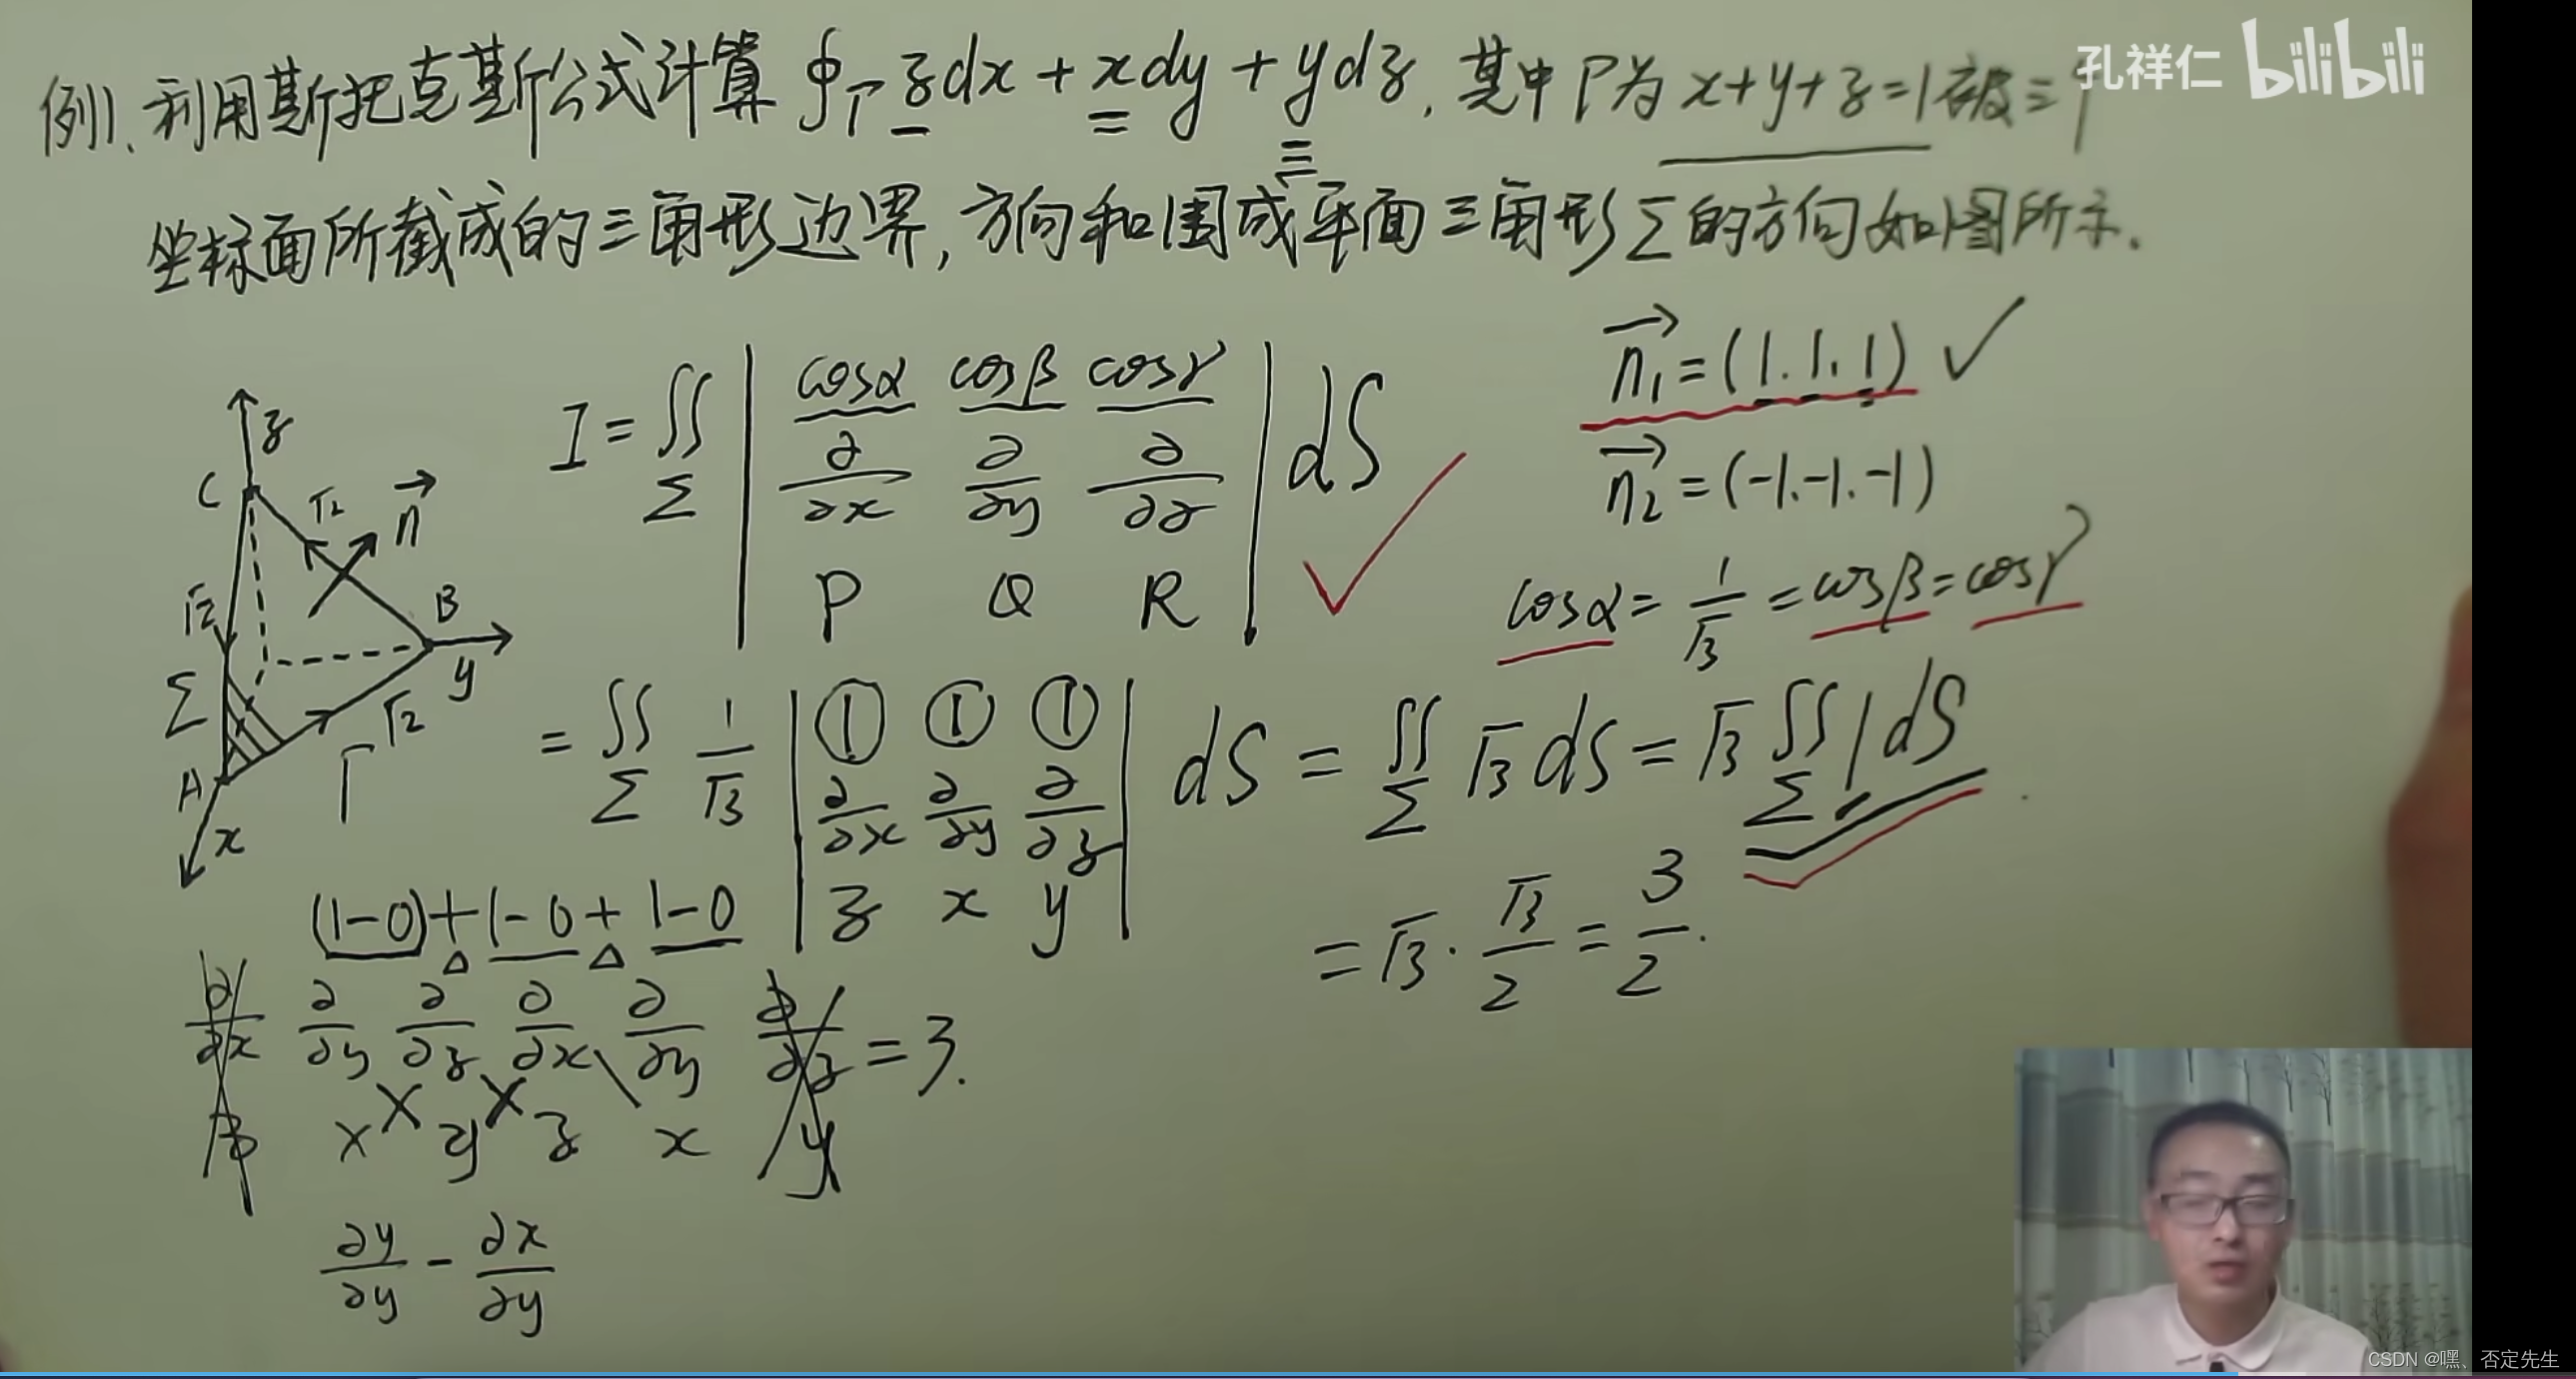 孔祥仁 bilibili
例1. 利用斯托克斯公式计算 ∮Γ zdx + xdy + ydz, 其中Γ为 x+y+z=1被三个
坐标面所截成的三角形边界, 方向和围成平面三角形Σ的方向如图所示.
z
C
√2
n⃗
B
√2
y
Σ
√2
A
Γ
x
I = ∬Σ | cosα cosβ cosγ |
| ∂/∂x ∂/∂y ∂/∂z | dS
| P Q R |
n₁⃗ = (1.1.1) ✓
n₂⃗ = (-1.-1.-1)
cosα = 1/√3 = cosβ = cosγ
= ∬Σ 1/√3 | ① ① ① |
| ∂/∂x ∂/∂y ∂/∂z | dS = ∬Σ √3 dS = √3 ∬Σ 1 dS
| z x y |
= √3 · √3/2 = 3/2.
(1-0)+1-0+1-0
∂/∂x ∂/∂y ∂/∂z ∂/∂x ∂/∂y ∂/∂z = 3.
x y z x y
∂y/∂y - ∂x/∂y
CSDN @嘿、否定先生